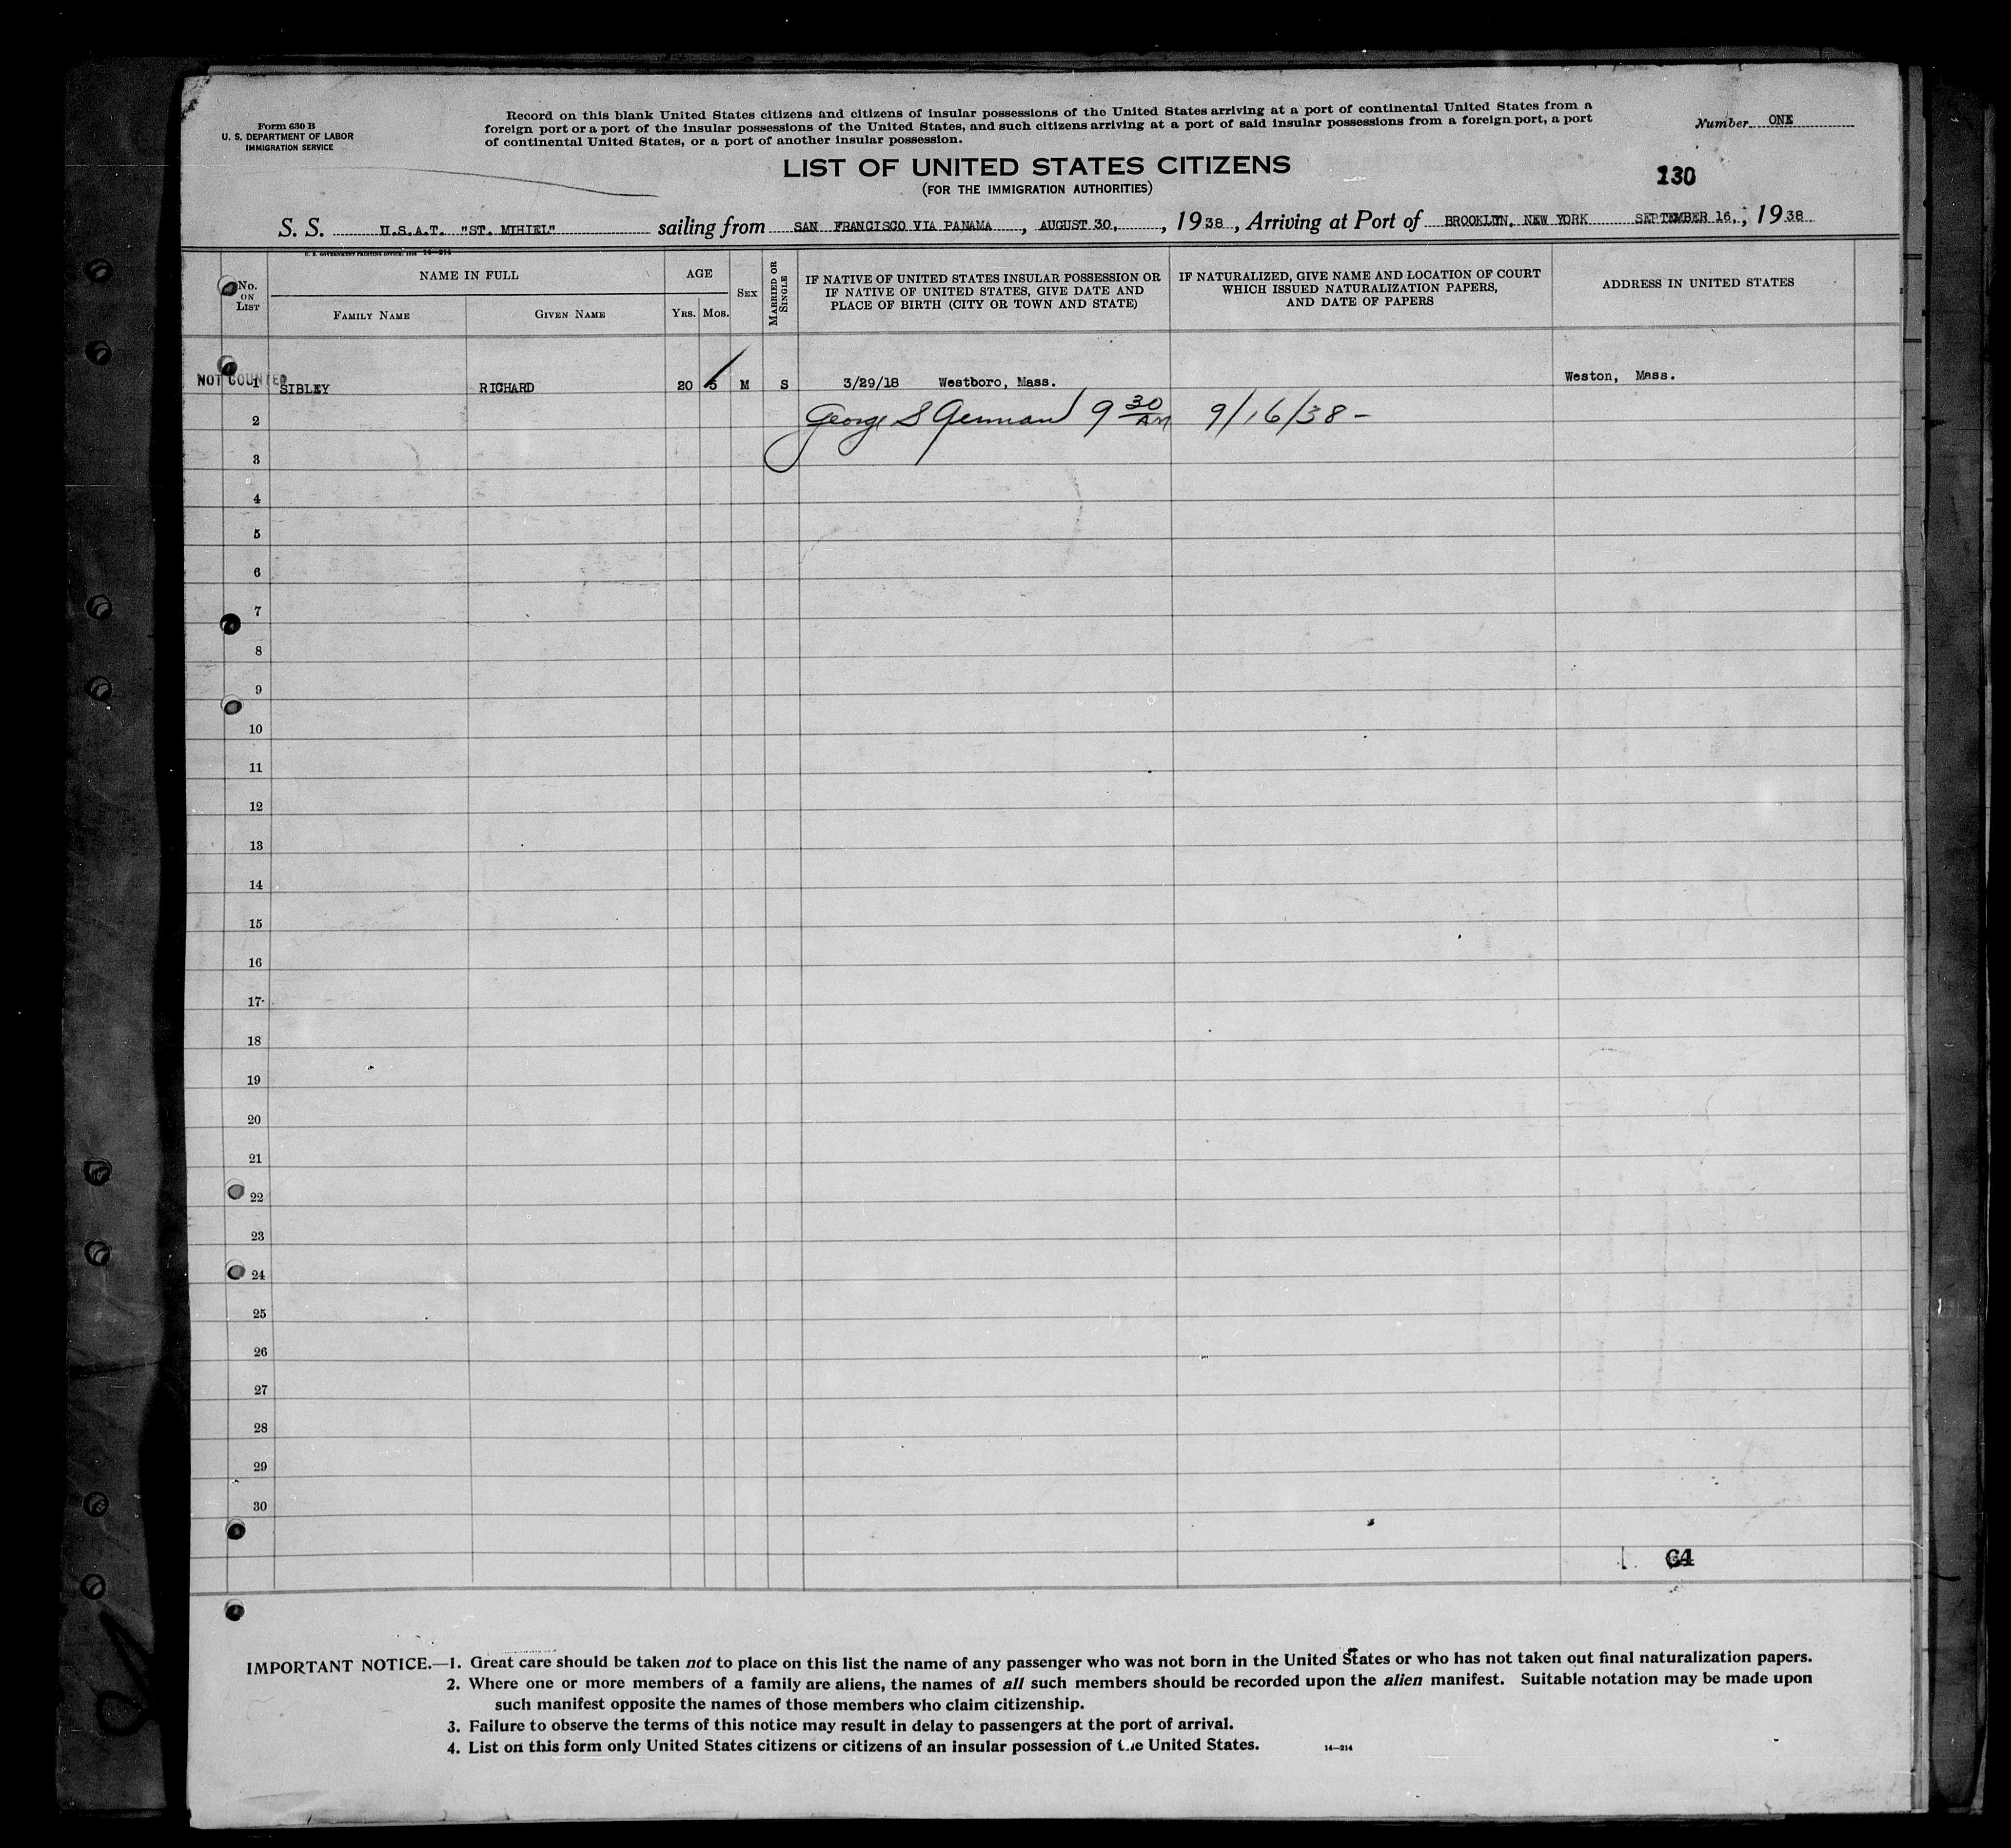 Form 630 B
U. S. DEPARTMENT OF LABOR
IMMIGRATION SERVICE
Record on this blank United States citizens and citizens of insular possessions of the United States arriving at a port of continental United States from a
foreign port or a port of the insular possessions of the United States, and such citizens arriving at a port of said insular possessions from a foreign port, a port
of continental United States, or a port of another insular possession.
Number ONE
LIST OF UNITED STATES CITIZENS
(FOR THE IMMIGRATION AUTHORITIES)
130
S. S. U.S.A.T. "ST. MIHIEL" sailing from SAN FRANCISCO VIA PANAMA, AUGUST 30, , 1938, Arriving at Port of BROOKLYN, NEW YORK SEPTEMBER 16, , 1938
U. S. GOVERNMENT PRINTING OFFICE: 1936 14—214
No.
ON
LIST
NAME IN FULL
FAMILY NAME
GIVEN NAME
AGE
YRS.
MOS.
SEX
MARRIED OR
SINGLE
IF NATIVE OF UNITED STATES INSULAR POSSESSION OR
IF NATIVE OF UNITED STATES, GIVE DATE AND
PLACE OF BIRTH (CITY OR TOWN AND STATE)
IF NATURALIZED, GIVE NAME AND LOCATION OF COURT
WHICH ISSUED NATURALIZATION PAPERS,
AND DATE OF PAPERS
ADDRESS IN UNITED STATES
NOT COUNTED
1 SIBLEY RICHARD 20 5 M S 3/29/18 Westboro, Mass. Weston, Mass.
2 George S 9 30 AM 9/16/38 -
3
4
5
6
7
8
9
10
11
12
13
14
15
16
17
18
19
20
21
22
23
24
25
26
27
28
29
30
IMPORTANT NOTICE.—1. Great care should be taken not to place on this list the name of any passenger who was not born in the United States or who has not taken out final naturalization papers.
2. Where one or more members of a family are aliens, the names of all such members should be recorded upon the alien manifest. Suitable notation may be made upon
such manifest opposite the names of those members who claim citizenship.
3. Failure to observe the terms of this notice may result in delay to passengers at the port of arrival.
4. List on this form only United States citizens or citizens of an insular possession of the United States.
14—214